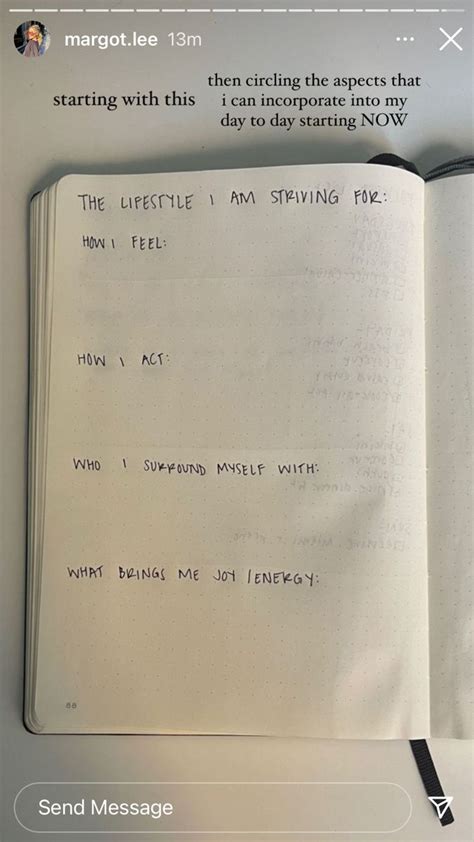 margot.lee 13m
then circling the aspects that
starting with this i can incorporate into my
day to day starting NOW
THE LIFESTYLE I AM STRIVING FOR:
HOW I FEEL:
HOW I ACT:
WHO I SURROUND MYSELF WITH:
WHAT BRINGS ME JOY / ENERGY:
88
Send Message